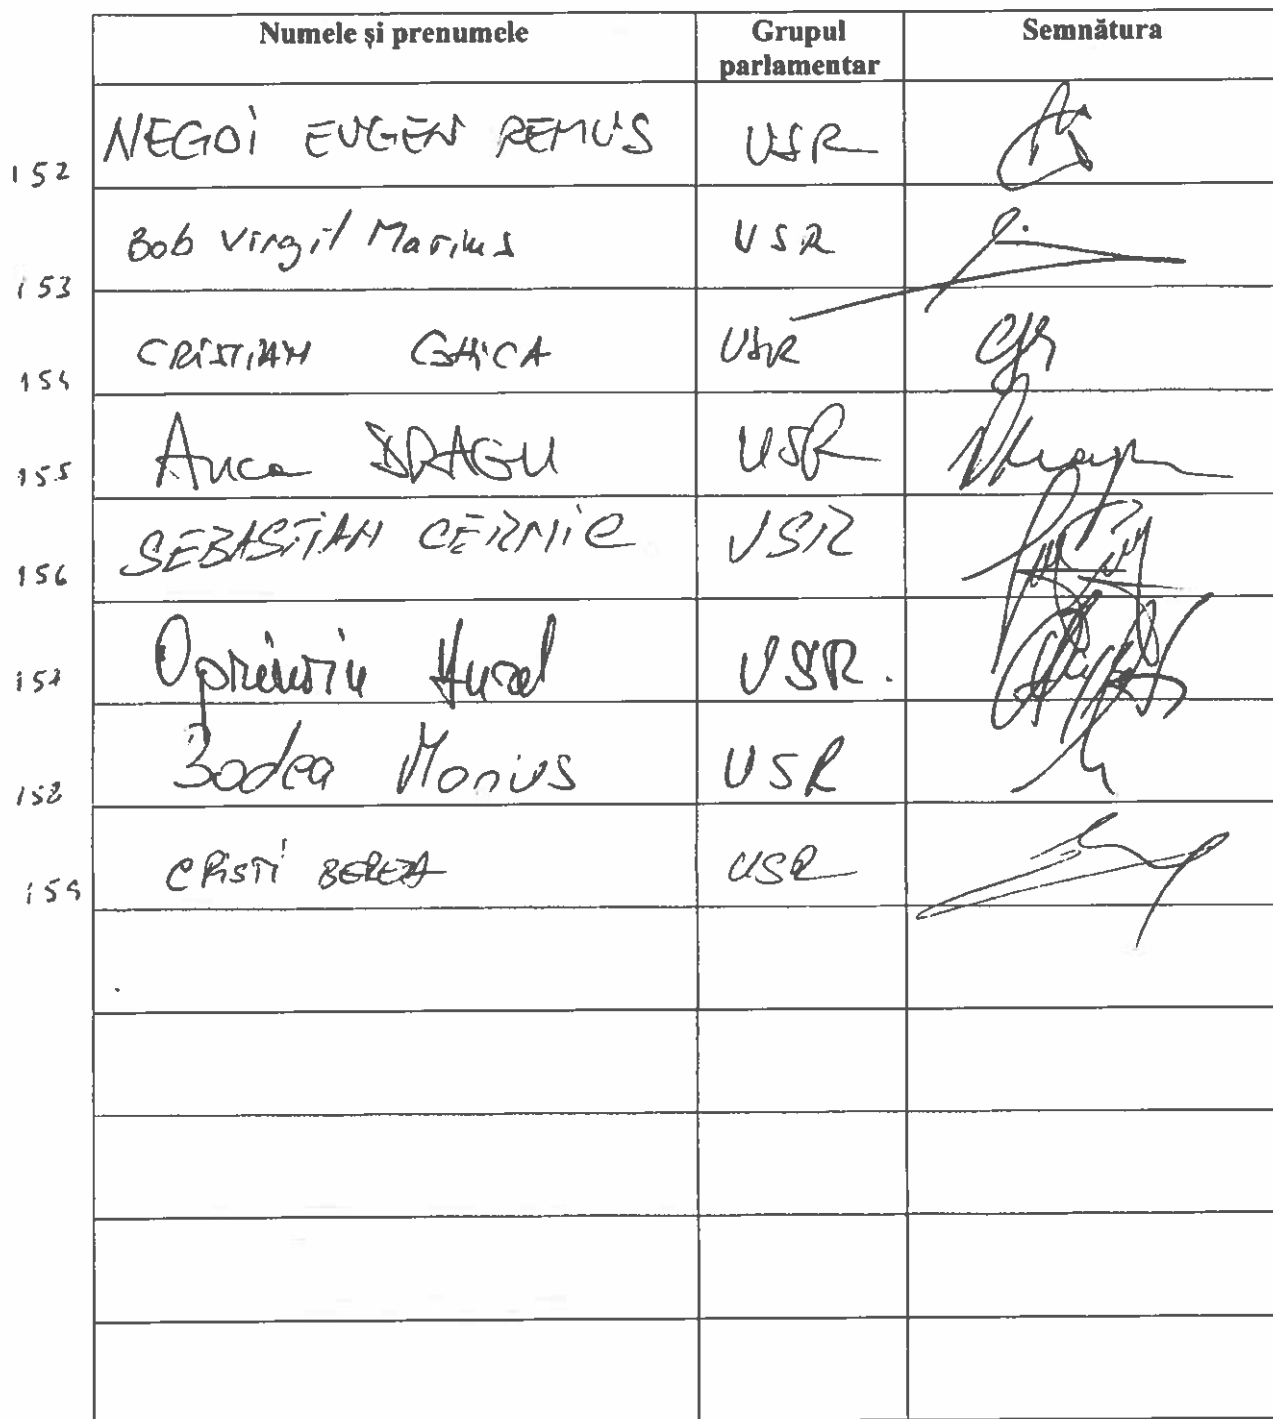 Numele și prenumele Grupul parlamentar Semnătura
152 NEGOI EUGEN REMUS USR
153 Bob Virgil Marius USR
154 CRISTIAN GHICA USR
155 Anca DRAGU USR
156 SEBASTIAN CERNIC USR
157 USR.
158 Bodea Marius USR
159 CRISTI BEREA USR